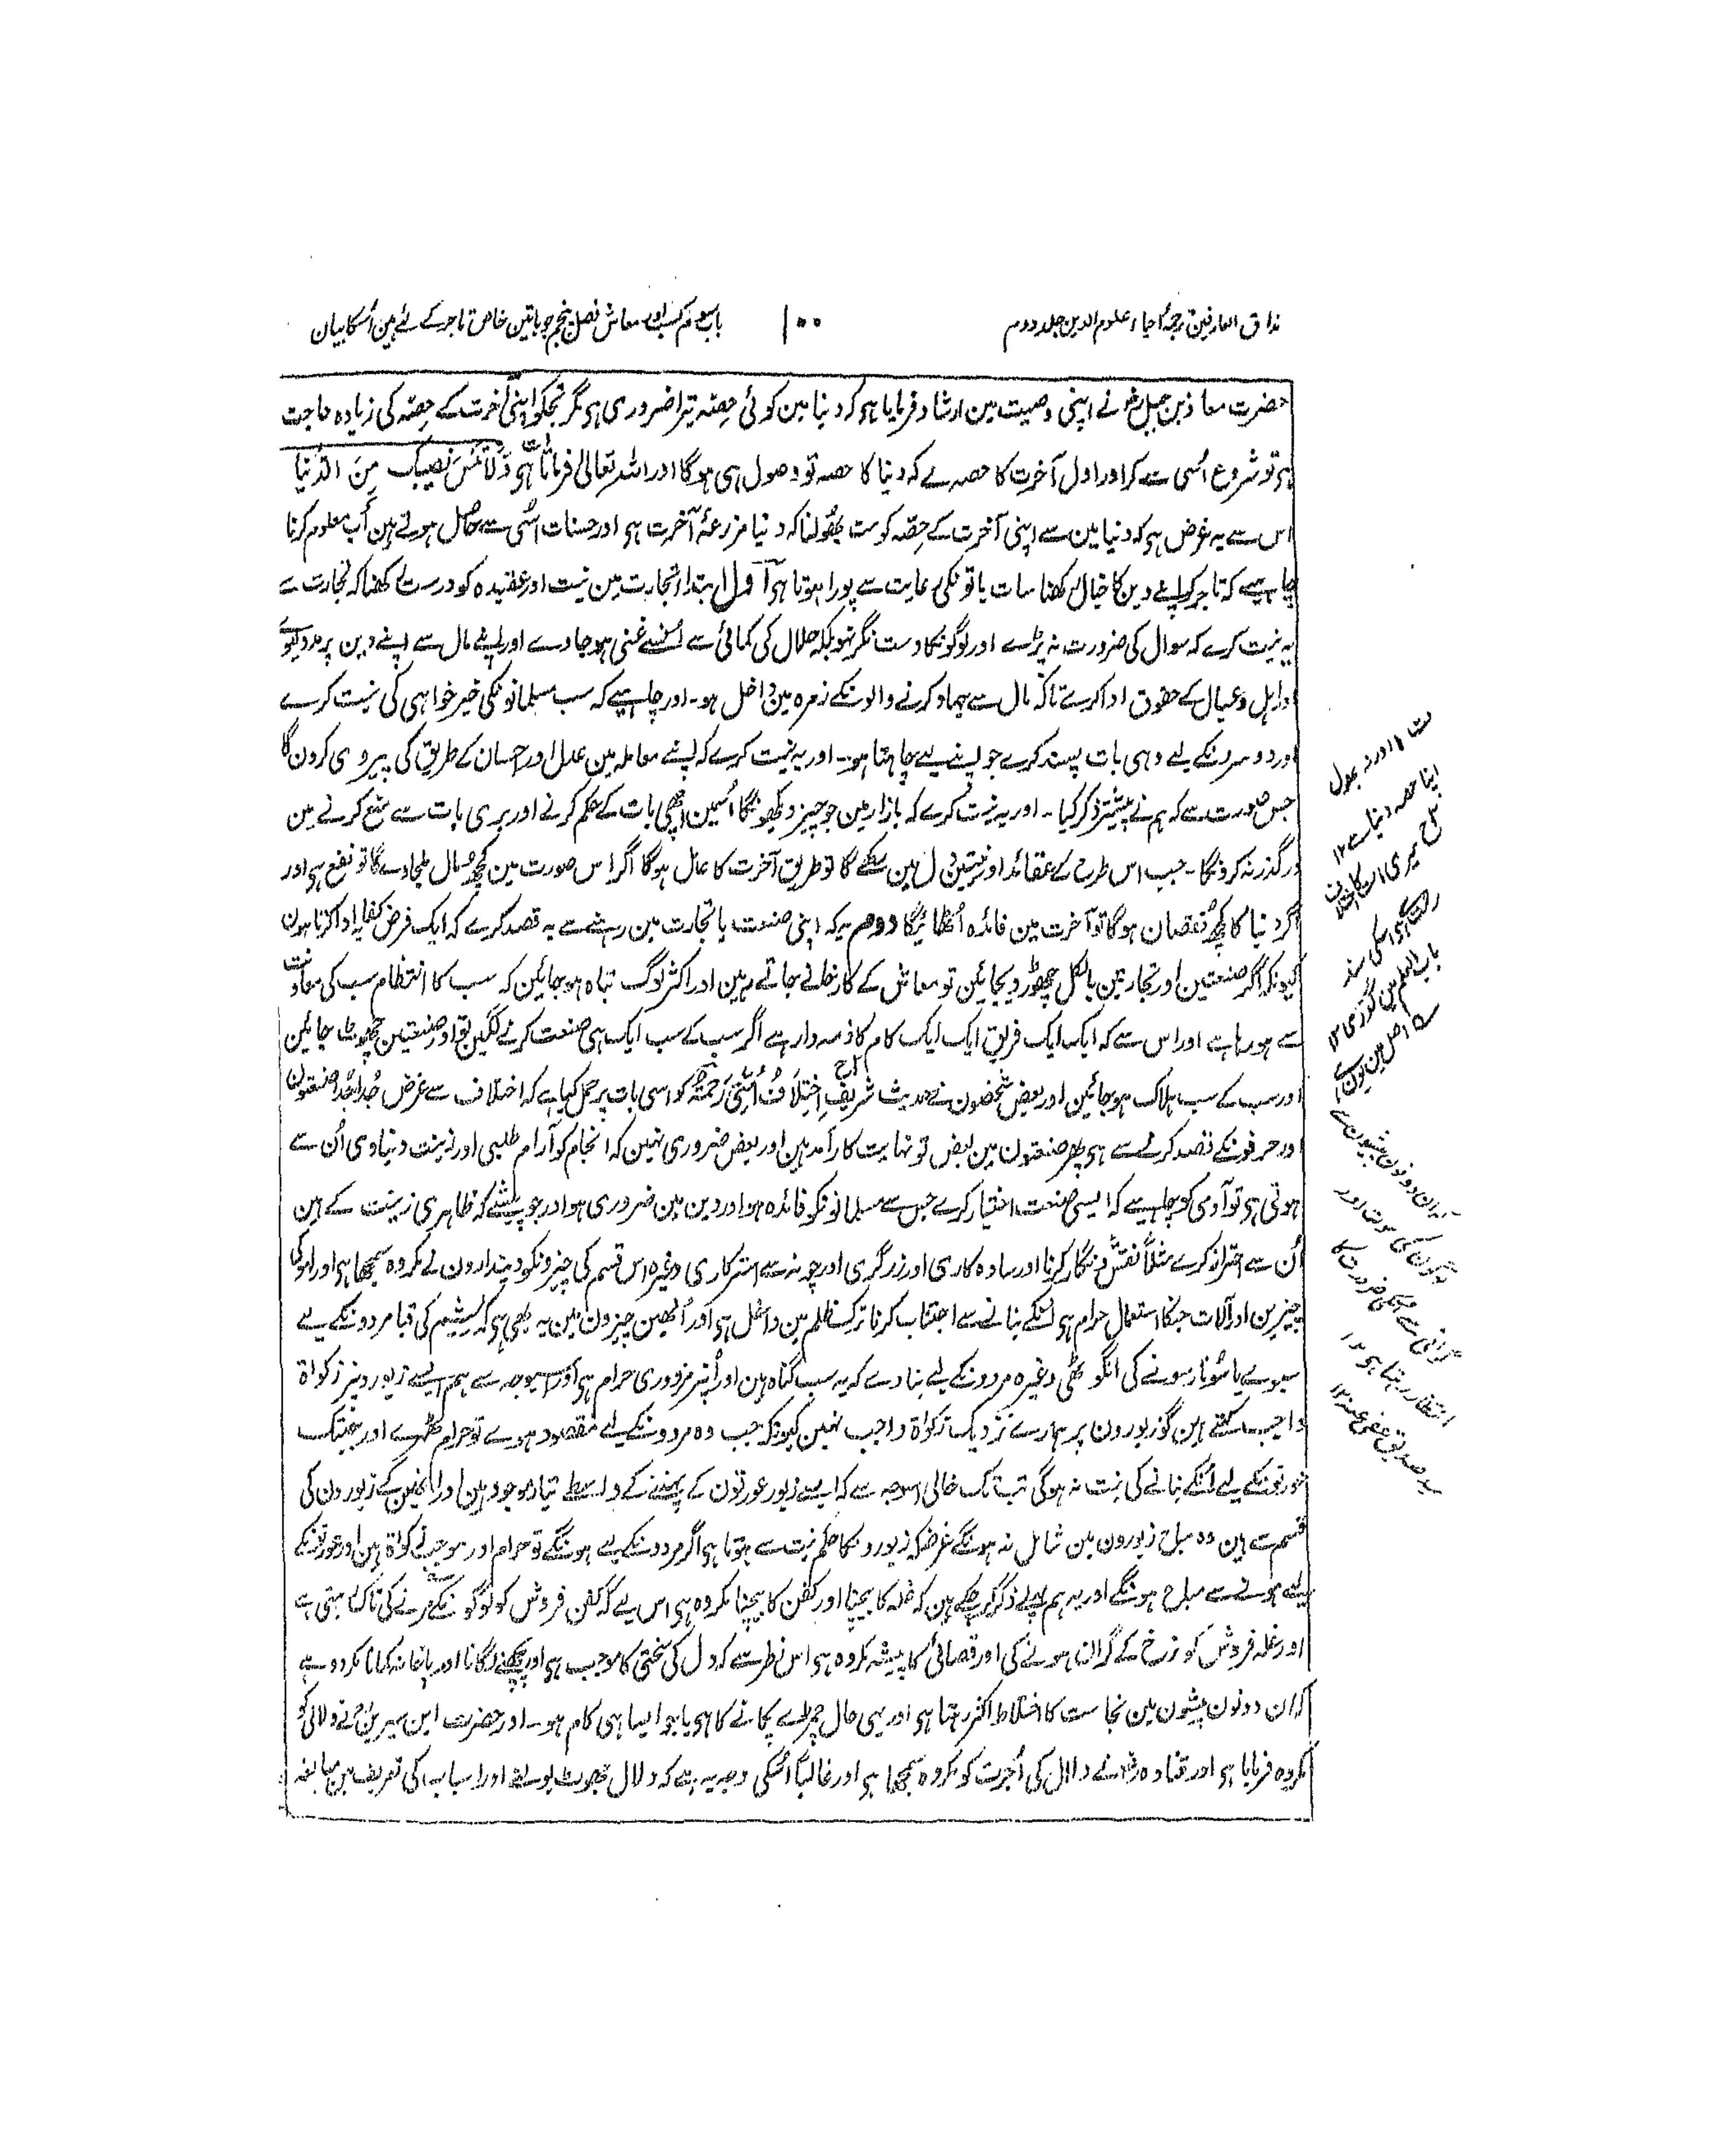 مذاق العارفین ترجمۂ احیاء علوم الدین جلد دوم
۱۰۰
باب سوم کسب اور معاش فصل پنجم جو باتین خاص تاجر کے لئے ہین اُسکا بیان
حضرت معاذ بن جبل رضؓ نے اپنی وصیت مین ارشاد فرمایا ہی کہ دنیا مین کوئی حصّہ تیرا ضروری ہی مگر تجکو اپنی آخرت کے حصّہ کی زیادہ حاجت
ہی تو شروع اُسی سے کر اور اول آخرت کا حصہ لے کہ دنیا کا حصہ تو وصول ہی ہوگا اور اللہ تعالیٰ فرماتا ہی وَلَاتَنْسَ نَصِیْبَکَ مِنَ الدُّنْیَا
اس سے یہ غرض ہی کہ دنیا مین سے اپنی آخرت کے حصّہ کو مت بھُولنا کہ دنیا مزرعۂ آخرت ہی اور حسنات اُسی سے حاصل ہوتے ہین اَب معلوم کرنا
چاہیے کہ تاجر کو اپنے دین کا خیال رکھنا سات باتونکی رعایت سے پورا ہوتا ہی اول ابتداءِ تجارت مین نیت اور عقیدہ کو درست رکھنا کہ تجارت سے
یہ نیت کرے کہ سوال کی ضرورت نہ پڑے اور لوگونکا دست نگر نہو بلکہ حلال کی کمائی سے اُنسے غنی ہو جاوے اور اپنے مال سے اپنے دین پر مدد لیوے
اور اہل و عیال کے حقوق ادا کرے تاکہ مال سے جہاد کرنے والونکے زمرہ مین داخل ہو۔ اور چاہیے کہ سب مسلمانونکی خیر خواہی کی نیت کرے
اور دوسرونکے لیے وہی بات پسند کرے جو اپنے لیے چاہتا ہو۔ اور یہ نیت کرے کہ اپنے معاملہ مین عدل اور احسان کے طریق کی پیروی کرون گا
جس صورت سے کہ ہم نے پیشتر ذکر کیا۔ اور یہ نیت کرے کہ بازار مین جو چیز دیکھونگا اُسمین اچھی بات کے حکم کرنے اور بری بات سے منع کرنے مین
درگذر نہ کرونگا۔ جب اس طرح کے عقائد اور نیتین دل مین رکھے گا تو طریق آخرت کا عامل ہوگا اگر اس صورت مین کچھ مال ملجاوے گا تو نفع ہی اور
اگر دنیا کا کچھ نقصان ہوگا تو آخرت مین فائدہ اُٹھائیگا دوم یہ کہ اپنی صنعت یا تجارت مین رہنے سے یہ قصد کرے کہ ایک فرض کفایہ ادا کرتا ہون
کیونکہ اگر صنعتین اور تجارتین بالکل چھوڑ دیجائین تو معاش کے کارخانے جاتے رہین اور اکثر لوگ تباہ ہو جائین کہ سب کا انتظام سب کی معاونت
سے ہو رہا ہے اور اس سے کہ ایک ایک فریق ایک ایک کام کا ذمہ دار ہے اگر سب کے سب ایک ہی صنعت کرنے لگین تو اور صنعتین چھوٹ جائین
اور سب کے سب ہلاک ہو جائین اور بعض شخصون نے حدیث شریف اِخْتِلَافُ اُمَّتِیْ رَحْمَۃٌ کو اسی بات پر حمل کیا ہے کہ اختلاف سے غرض جُدا جُدا صنعتون
اور حرفونکے قصد کرنے سے ہی پھر صنعتون مین بعض تو نہایت کارآمد ہین اور بعض ضروری نہین کہ انجام کو آرام طلبی اور زینت دنیاوی اُن سے
ہوتی ہی تو آدمی کو چاہیے کہ ایسی صنعت اختیار کرے جس سے مسلمانونکو فائدہ ہو اور دین مین ضروری ہو اور جو پیشے کہ ظاہری زینت کے ہین
اُن سے احتراز کرے مثلاً نقش و نگار کرنا اور سادہ کاری اور زرگری اور چونہ سے استرکاری وغیرہ اس قسم کی چیزونکو دیندارون نے مکروہ سمجھا ہی اور لہو کی
چیزین اور آلات جنکا استعمال حرام ہی اُنکے بنانے سے اجتناب کرنا ترک ظلم مین داخل ہی اور اُنھین چیزون مین یہ بھی ہی کہ ریشم کی قبا مردونکے لیے
سیوے یا سُونار سونے کی انگوٹھی وغیرہ مردونکے لیے بناوے کہ یہ سب گناہ ہین اور اُنپر مزدوری حرام ہی اور اسیوجہ سے ہم ایسے زیورونپر زکوٰۃ
واجب کہتے ہین گو زیورون پر ہمارے نزدیک زکوٰۃ واجب نہین کیونکہ جب وہ مردونکے لیے مقصود ہوے تو حرام ٹھہرے اور جبتک
عورتونکے لیے اُنکے بنانے کی نیت نہ ہوگی تب تک خالی اسوجہ سے کہ ایسے زیور عورتون کے پہننے کے واسطے تیار موجود ہین اور انھین کے زیورون کی
قسم سے ہین وہ مباح زیورون مین شامل نہ ہونگے غرضکہ زیورونکا حکم نیت سے ہوتا ہی اگر مردونکے لیے ہونگے تو حرام اور موجب زکوٰۃ ہین اور عورتونکے
لیے ہونے سے مباح ہونگے اور یہ ہم پہلے ذکر کر چکے ہین کہ غلہ کا بیچنا اور کفن کا بیچنا مکروہ ہی اس لیے کہ کفن فروش کو لوگونکے مرنے کی تاک رہتی ہے
اور غلہ فروش کو نرخ کے گران ہونے کی اور قصائی کا پیشہ مکروہ ہی اس نظر سے کہ دل کی سختی کا موجب ہی اور پچھنے لگانا اور پائخانہ کمانا مکروہ ہے
کہ ان دونون پیشون مین نجاست کا اختلاط اکثر رہتا ہی اور یہی حال چمڑے پکانے کا ہی یا جو ایسا ہی کام ہو۔ اور حضرت ابن سیرینؒ نے دلالی کو
مکروہ فرمایا ہی اور قتادہ رضؓ نے دلال کی اُجرت کو مکروہ سمجھا ہی اور غالباً اُسکی وجہ یہ ہے کہ دلال جھوٹ بولنے اور اسباب کی تعریف مین مبالغہ
اور نہ بھول
اپنا حصہ دنیا سے ۱۲
میری امت کا اختلاف
رحمت ہی اسکی سند
باب العلم مین گذری ۱۲
اصل مین یون ہے
کہ ان دونون پیشون سے
لوگون کی موت اور
گرانی سے
انتظار رہتا ہی ۱۲